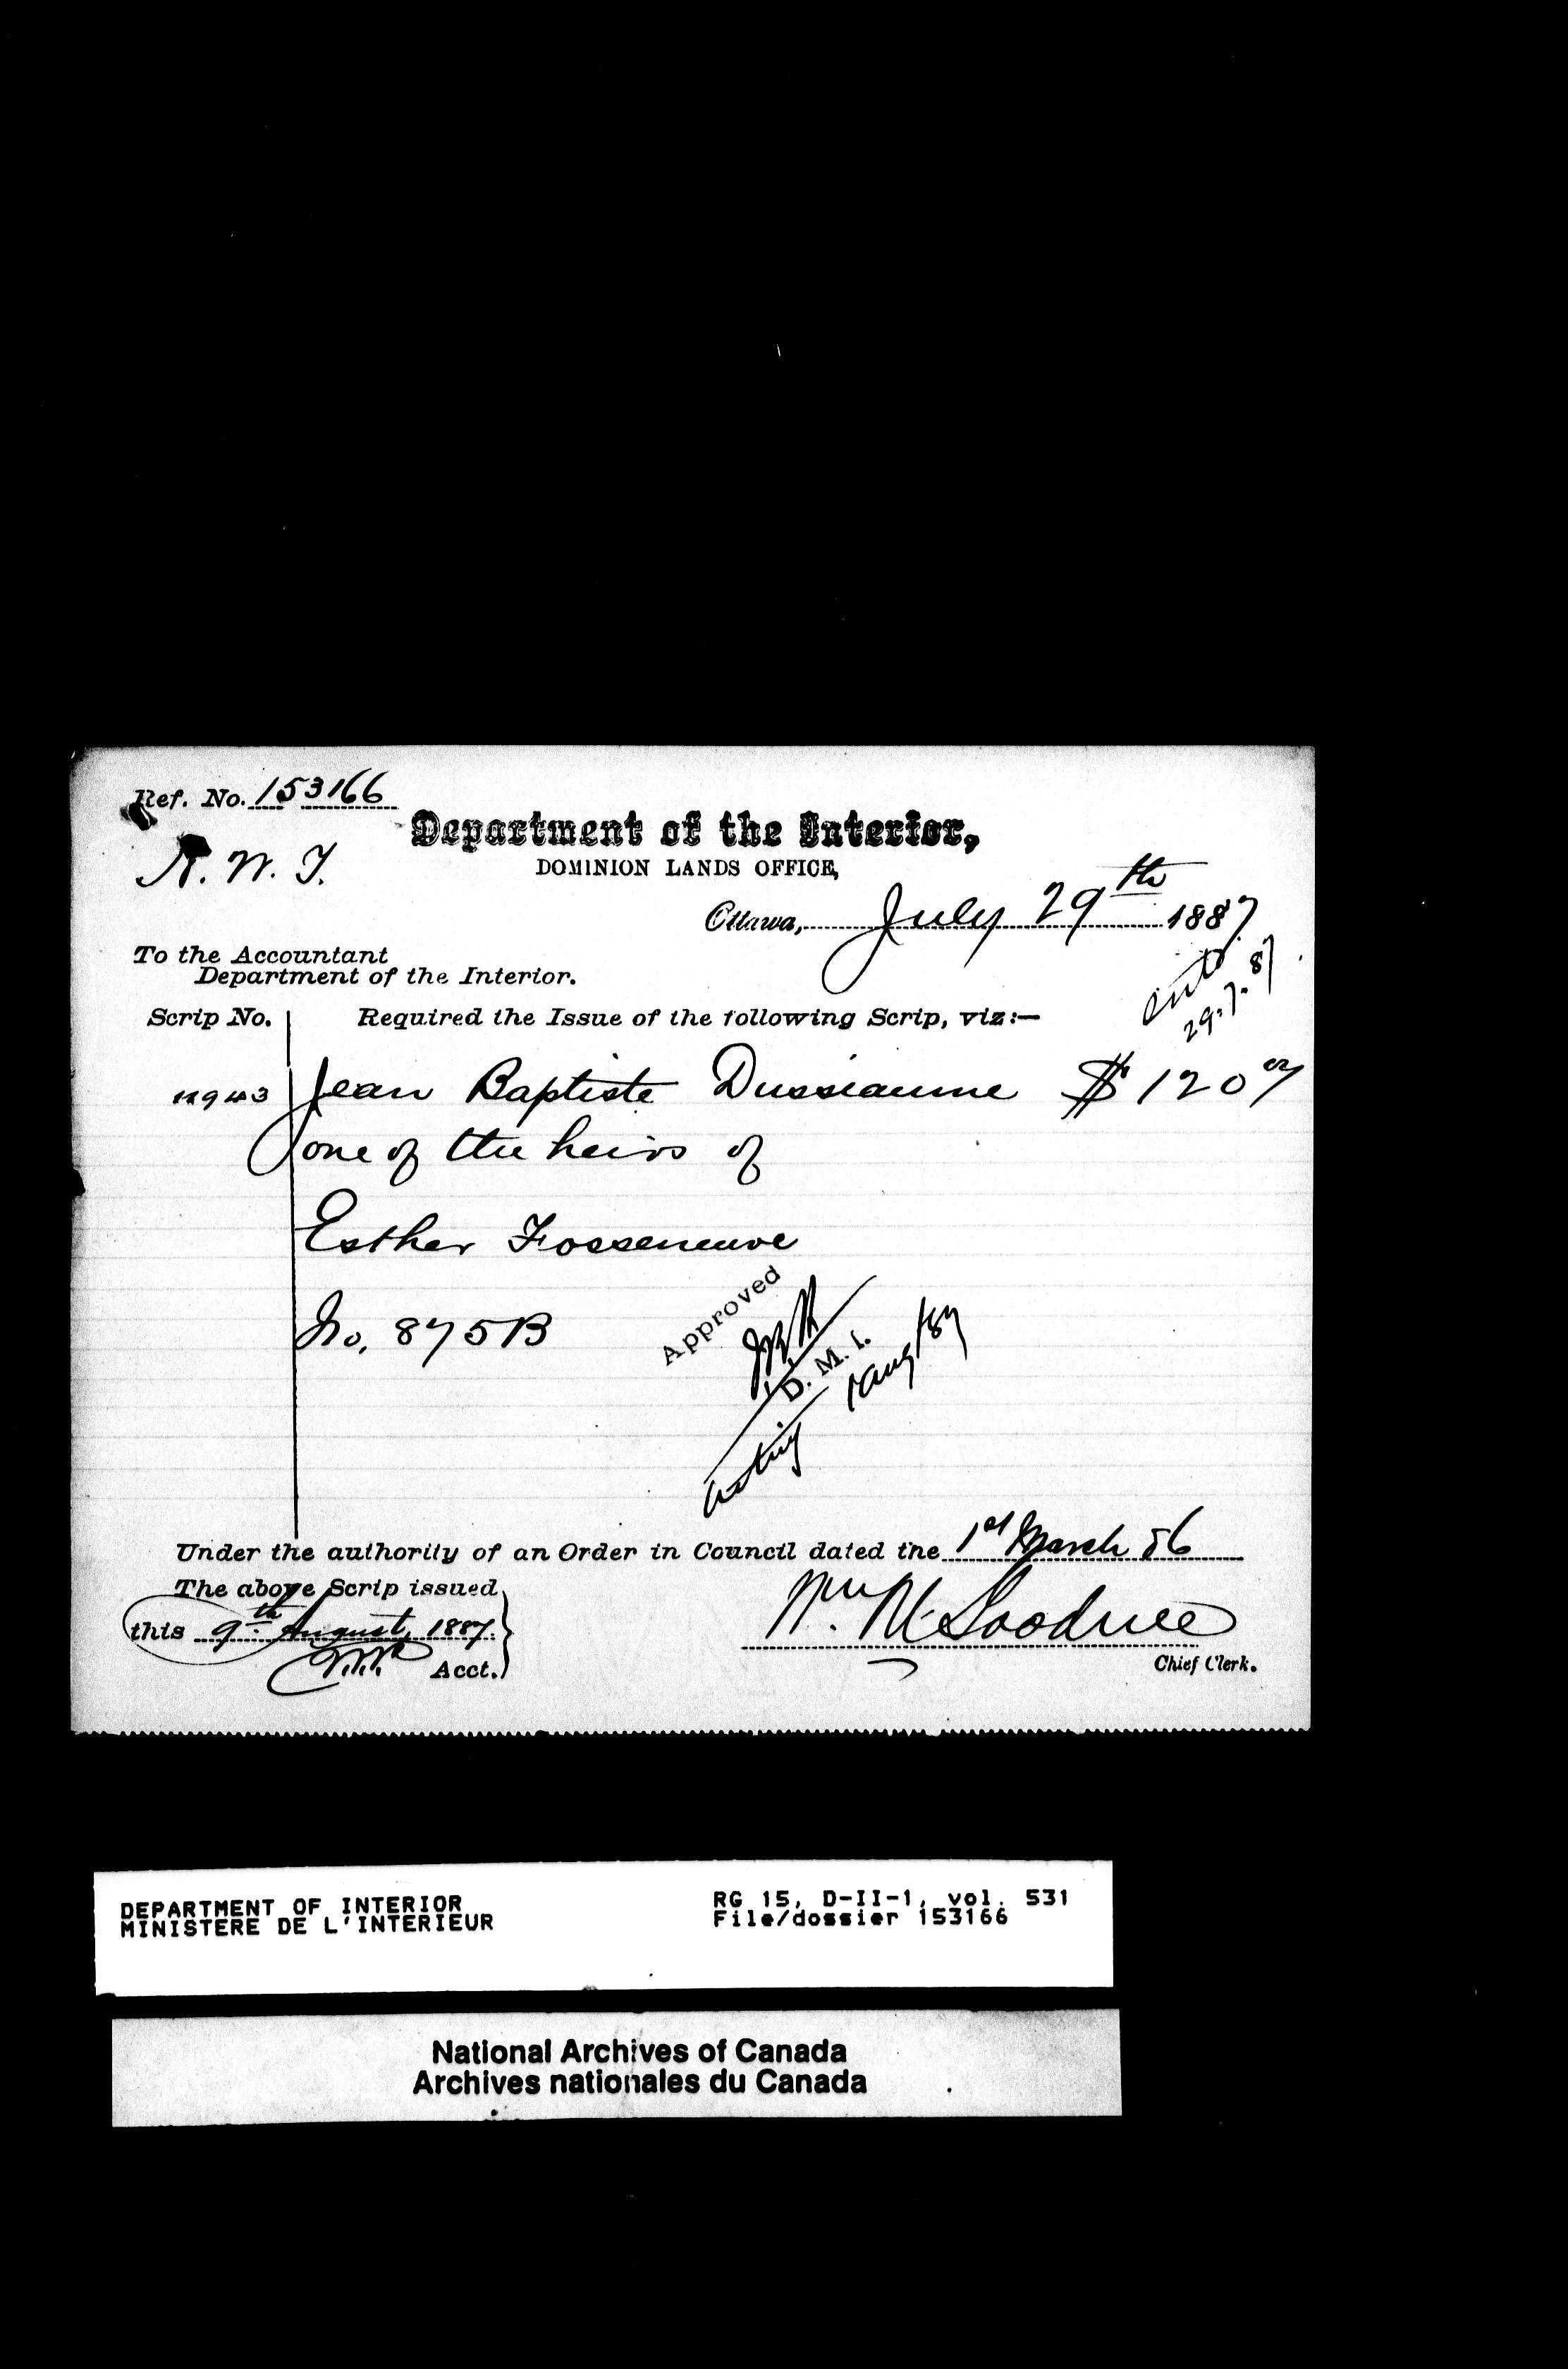 Ref. No. 153166
N. W. T.
Department of the Interior,
DOMINION LANDS OFFICE,
Ottawa, July 29th 1887
29.7.87
To the Accountant
Department of the Interior.
Scrip No. Required the Issue of the following Scrip, viz:—
Jean Baptiste Dussiaume $120
one of the heirs of
Esther Fosseneuve
No. 875B
Approved
D. M. I.
Acting
Aug/87
Under the authority of an Order in Council dated the 1st March 86
The above Scrip issued
this 9th August, 1887.
Acct.
Chief Clerk.
DEPARTMENT OF INTERIOR
MINISTERE DE L'INTERIEUR
RG 15, D-II-1, vol. 531
File/dossier 153166
National Archives of Canada
Archives nationales du Canada